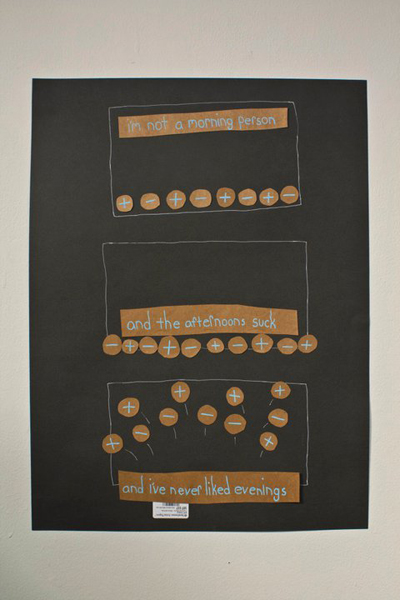 i'm not a morning person
+ − + − + − + −
and the afternoons suck
− + − + − + − + − +
+ + + +
− − − −
+ − +
and i've never liked evenings